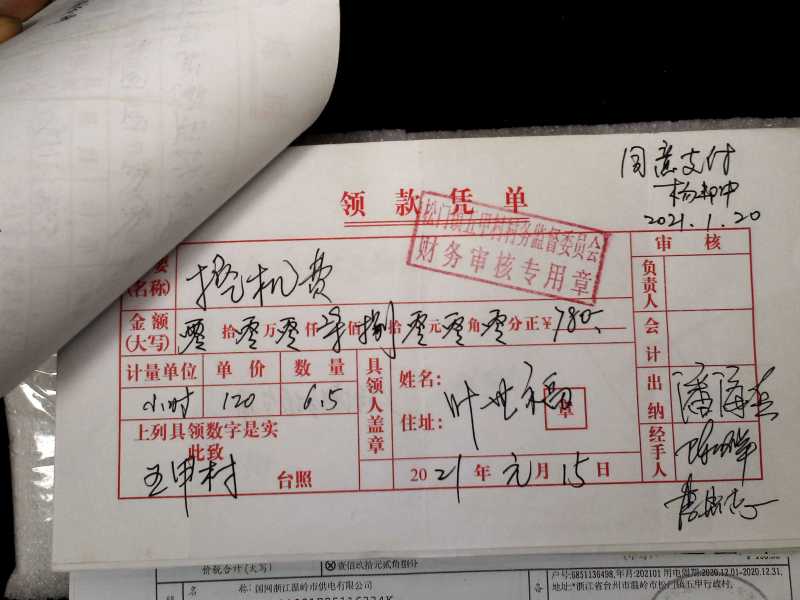 同意支付
2021.1.20
领款凭单
松门镇五甲村村务监督委员会
财务审核专用章
要
(名称)
挖机费
审核
负责人
会计
出纳
经手人
金额
(大写)
零拾零万零仟柒佰捌拾零元零角零分正¥780.
计量单位 单价 数量
小时 120 6.5
具领人盖章
姓名:
住址:
叶世福
章
上列具领数字是实
此致
五甲村 台照
2021年元月15日
价税合计(大写) ⊗壹佰玖拾元贰角捌分
称:国网浙江温岭市供电有限公司
户号:6851136498,年月:202101 用电周期:2020.12.01-2020.12.31.
地址:*浙江省台州市温岭市松门镇五甲行政村.